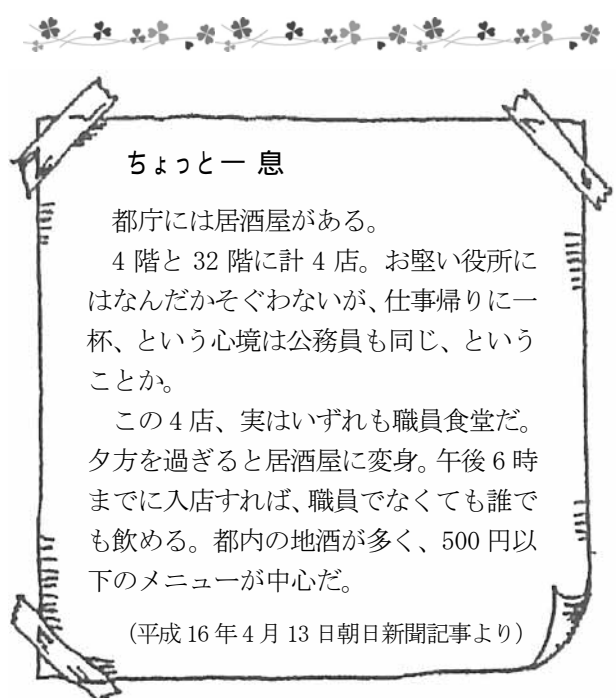 ちょっと一息
都庁には居酒屋がある。
4階と32階に計4店。お堅い役所に
はなんだかそぐわないが、仕事帰りに一
杯、という心境は公務員も同じ、という
ことか。
この4店、実はいずれも職員食堂だ。
夕方を過ぎると居酒屋に変身。午後6時
までに入店すれば、職員でなくても誰で
も飲める。都内の地酒が多く、500円以
下のメニューが中心だ。
(平成16年4月13日朝日新聞記事より)